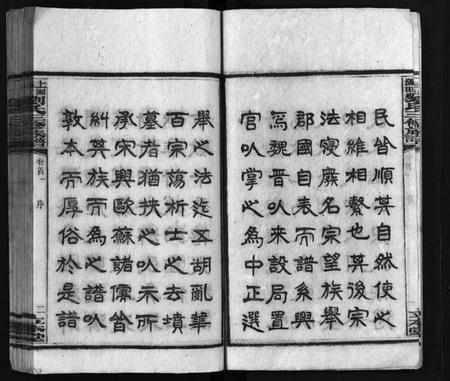 民皆順其自然使之
相維相繫也其後宗
法寖廢名宗望族舉
郡國自表而譜系興
焉魏晉㠯來設局置
官㠯掌之為中正選
舉之法迄五胡亂華
百宗蕩析士之去墳
墓者猶挾之㠯示所
承宋興歐蘇諸儒皆
糾其族而為之譜㠯
敦本而厚俗於是譜
上湘劉氏三修族譜
卷首
序